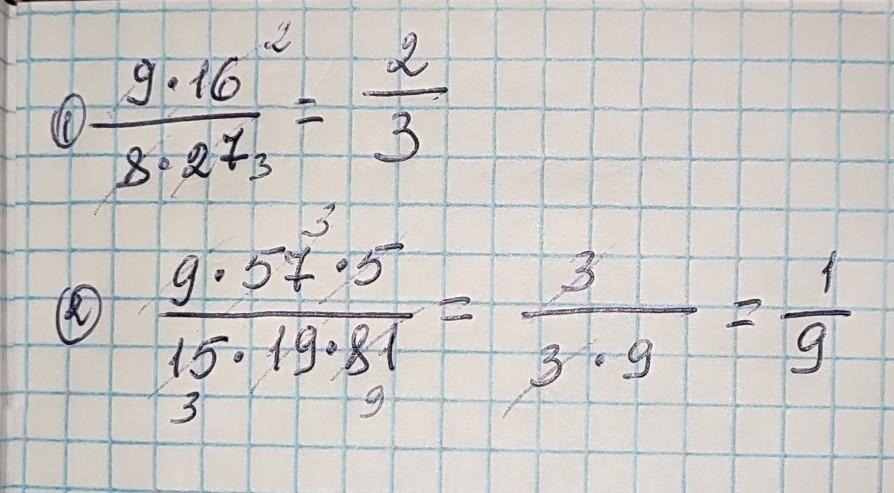 ① (9·16²)/(8·27₃) = 2/3
② (9·57³·5)/(15₃·19·81₉) = 3/(3·9) = 1/9